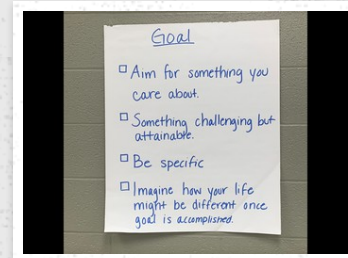 Goal
□ Aim for something you
care about.
□ Something challenging but
attainable.
□ Be specific
□ Imagine how your life
might be different once
goal is accomplished.